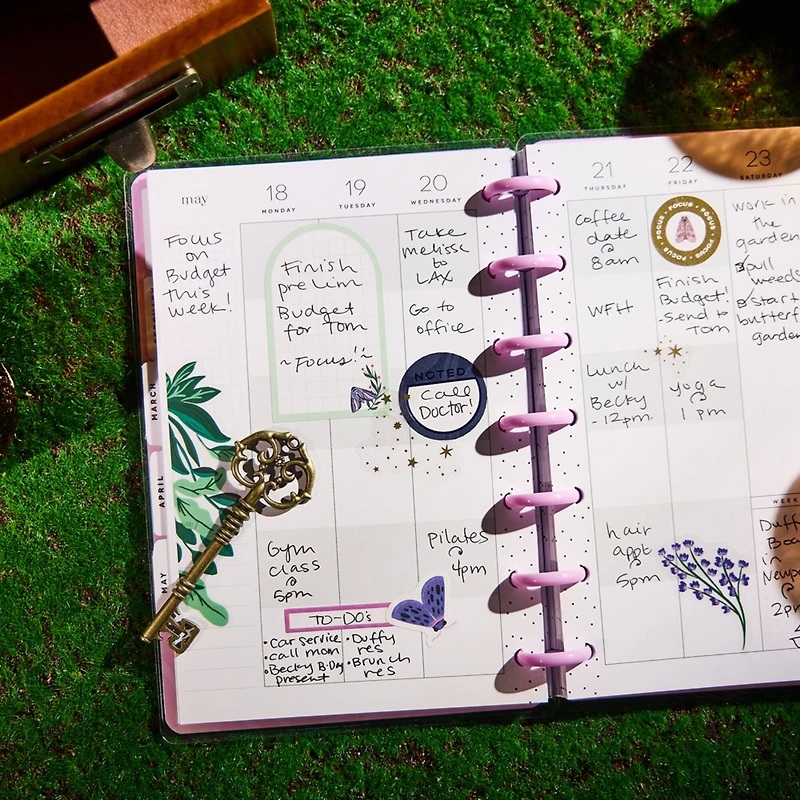 may
18
MONDAY
19
TUESDAY
20
WEDNESDAY
Focus
on
Budget
this
week!
Finish
prelim
Budget
for Tom
~Focus!!~
Take
melissa
to
LAX
Go to
office
NOTED
Call
Doctor!
Gym
class
@
5pm
Pilates
@
4pm
TO-DO's
•Car service
•call mom
•Becky B-Day
present
•Duffy
res
•Brunch
res
MARCH
APRIL
MAY
21
THURSDAY
22
FRIDAY
23
SATURDAY
Coffee
date
@
8am
WFH
Lunch
w/
Becky
-12pm.
hair
appt
@
5pm
FOCUS • FOCUS • FOCUS • FOCUS • FOCUS
Finish
Budget!
-send to
Tom
yoga
@
1pm
work in
the
garden
pull
weeds
start
butterf
garden
WEEK
Duff
Boa
in
Newpo
2p